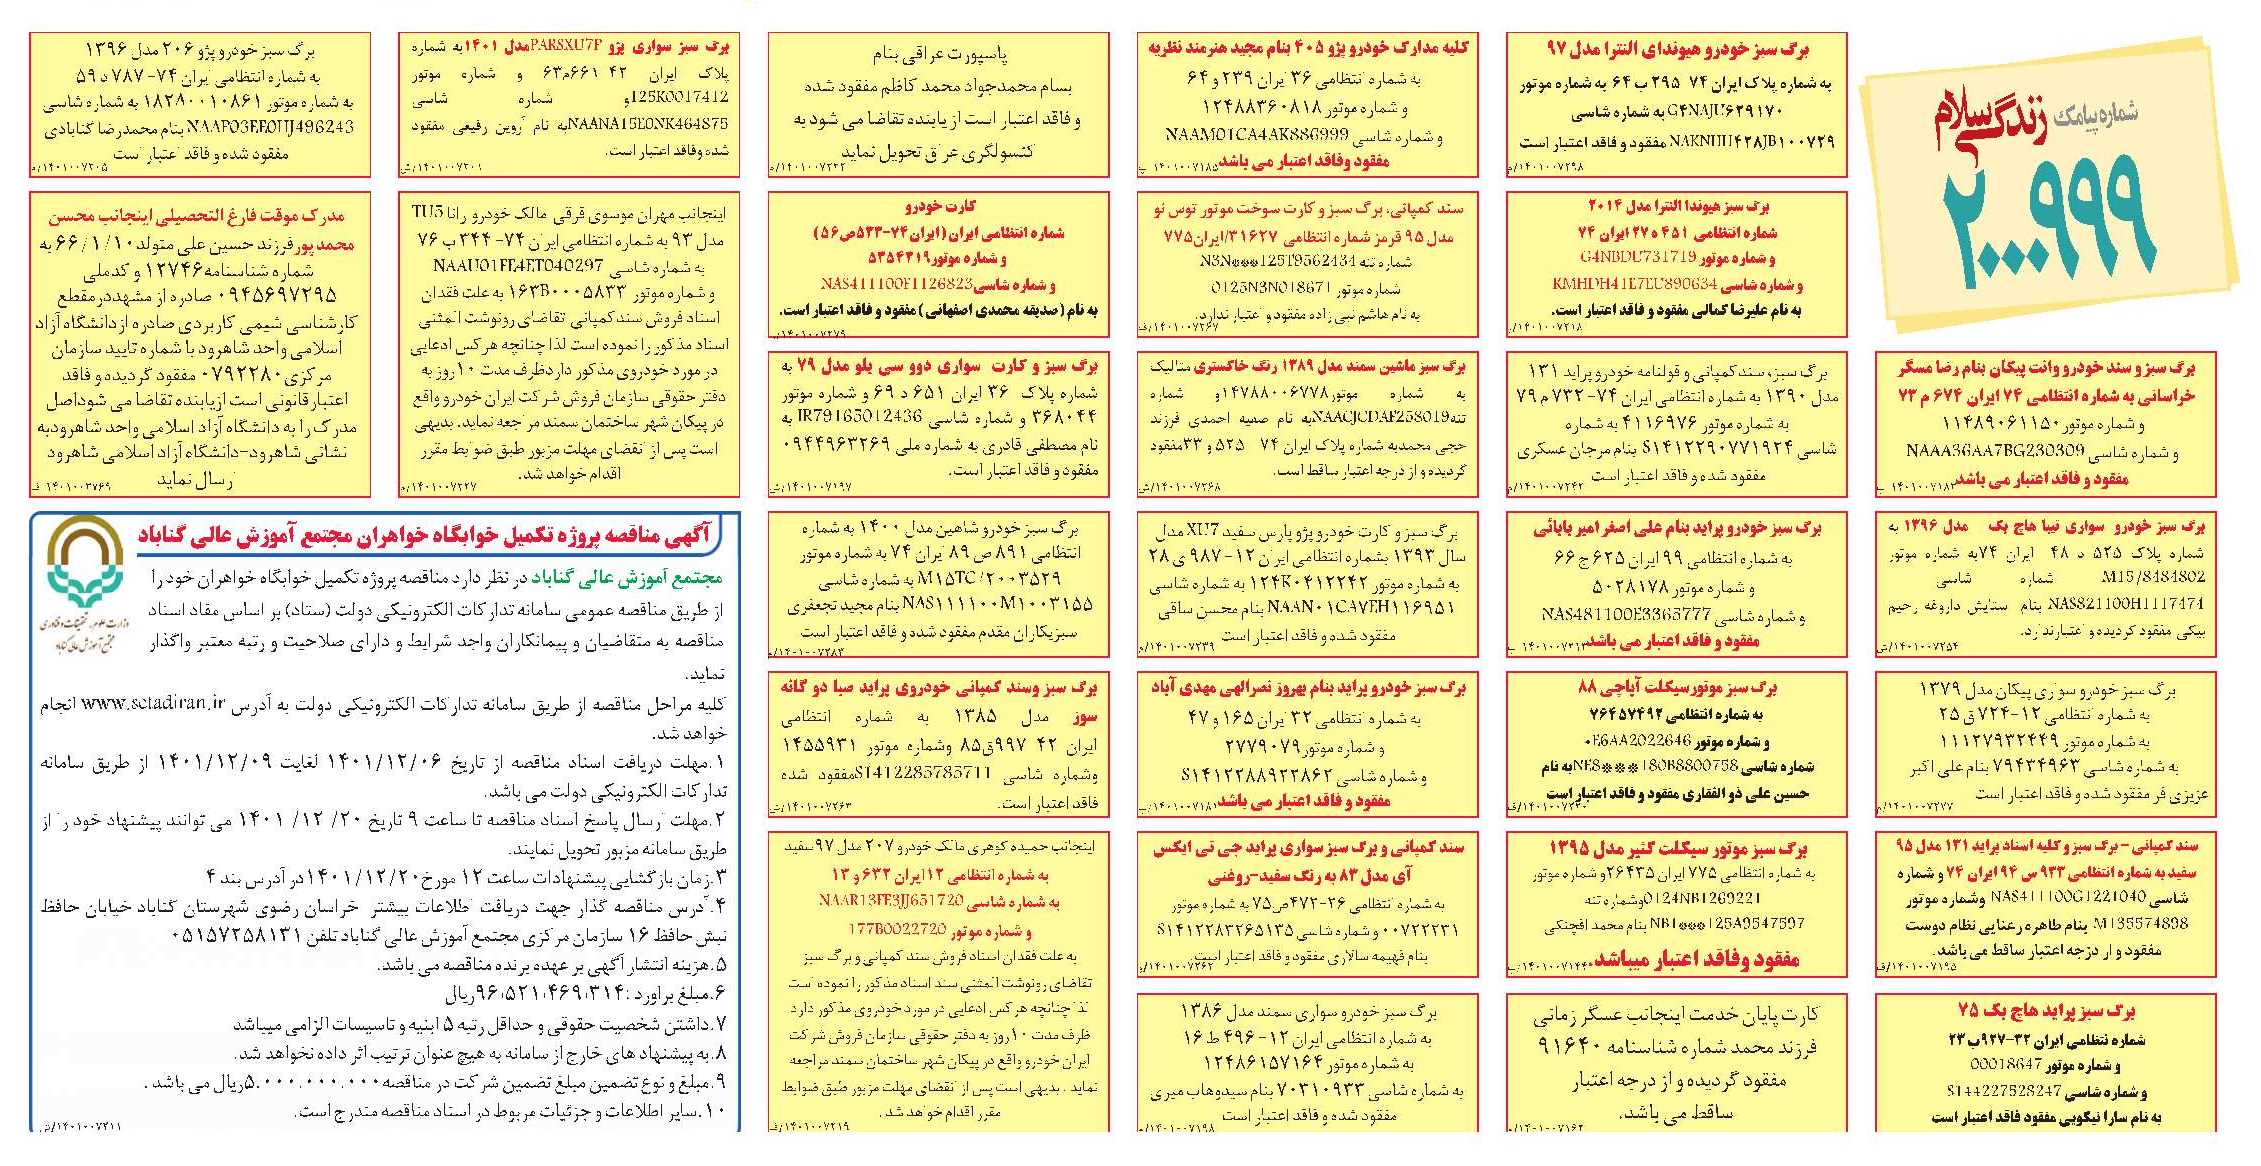 شماره پیامک زندگی سلام
۲۰۰۰۹۹۹
برگ سبز و سند خودرو وانت پیکان بنام رضا مسگر
خراسانی به شماره انتظامی ۷۴ ایران ۶۷۴ م ۷۳
و شماره موتور ۱۱۴۸۹۰۶۱۱۵۰
و شماره شاسی NAAA36AA7BG230309
مفقود و فاقد اعتبار می باشد
برگ سبز خودرو سواری تیبا هاچ بک مدل ۱۳۹۶ به
شماره پلاک ۵۲۵ د ۴۸ ایران ۷۴ به شماره موتور
M15/8484802 شماره شاسی
NAS821100H1117474 بنام ستایش داروغه رحیم
بیکی مفقود گردیده و اعتبار ندارد.
۱۴۰۱۰۰۷۲۵۴/ش
برگ سبز خودرو سواری پیکان مدل ۱۳۷۹
به شماره انتظامی ۱۲-۷۲۴ ق ۲۵
به شماره موتور ۱۱۱۲۷۹۳۲۴۴۹
به شماره شاسی ۷۹۴۳۴۹۶۳ بنام علی اکبر
عزیزی فر مفقود شده و فاقد اعتبار است
۱۴۰۱۰۰۷۲۷۷/م
سند کمپانی - برگ سبز و کلیه اسناد پراید ۱۳۱ مدل ۹۵
سفید به شماره انتظامی ۹۳۳ س ۹۴ ایران ۷۴ و شماره
شاسی NAS411100G1221040 وشماره موتور
M135574898 بنام طاهره رعنایی نظام دوست
مفقود و از درجه اعتبار ساقط می باشد.
۱۴۰۱۰۰۷۱۹۵/ف
برگ سبز پراید هاچ بک ۷۵
شماره نتظامی ایران ۳۲-۹۲۷ب ۲۳
و شماره موتور 00018647
و شماره شاسی S144227528247
به نام سارا نیکویی مفقود فاقد اعتبار است
برگ سبز خودرو هیوندای النترا مدل ۹۷
به شماره پلاک ایران ۷۴ ۲۹۵ ب ۶۴ به شماره موتور
G4NAJU۶۲۹۱۷۰ به شماره شاسی
NAKNHH۴۲۸JB۱۰۰۷۳۹ مفقود و فاقد اعتبار است
۱۴۰۱۰۰۷۲۹۸/م
برگ سبز هیوندا النترا مدل ۲۰۱۴
شماره انتظامی ۴۵۱ ه ۲۷ ایران ۷۴
و شماره موتور G4NBDU731719
و شماره شاسی KMHDH41E7EU890634
به نام علیرضا کمالی مفقود و فاقد اعتبار است.
۱۴۰۱۰۰۷۲۱۸/م
برگ سبز، سند کمپانی و قولنامه خودرو پراید ۱۳۱
مدل ۱۳۹۰ به شماره انتظامی ایران ۷۴-۷۳۲ م ۷۹
به شماره موتور ۴۱۱۶۹۷۶ به شماره
شاسی S۱۴۱۲۲۹۰۷۷۱۹۲۴ بنام مرجان عسکری
مفقود شده و فاقد اعتبار است
۱۴۰۱۰۰۷۲۴۲/م
برگ سبز خودرو پراید بنام علی اصغر امیر پایانی
به شماره انتظامی ۹۹ ایران ۶۲۵ ج ۶۶
و شماره موتور ۵۰۲۸۱۷۸
و شماره شاسی NAS481100E3365777
مفقود و فاقد اعتبار می باشد
برگ سبز موتورسیکلت آپاچی ۸۸
به شماره انتظامی ۷۶۴۵۷۴۹۲
و شماره موتور 0E6AA2022646
شماره شاسی NE8***180B8800758 به نام
حسین علی ذو الفقاری مفقود و فاقد اعتبار است
برگ سبز موتور سیکلت کثیر مدل ۱۳۹۵
به شماره انتظامی ۷۷۵ ایران ۲۶۴۳۵و شماره موتور
0124NB1269221وشماره تنه
NB1***125A9547597 بنام محمد افچنکی
مفقود وفاقد اعتبار میباشد.
۱۴۰۱۰۰۷۱۴۴/ب
کارت پایان خدمت اینجانب عسگر زمانی
فرزند محمد شماره شناسنامه ۹۱۶۴۰
مفقود گردیده و از درجه اعتبار
ساقط می باشد.
۱۴۰۱۰۰۷۱۶۲/م
کلیه مدارک خودرو پژو ۴۰۵ بنام مجید هنرمند نظریه
به شماره انتظامی ۳۶ ایران ۲۳۹ و ۶۴
و شماره موتور ۱۲۴۸۸۳۶۰۸۱۸
و شماره شاسی NAAM01CA4AK886999
مفقود وفاقد اعتبار می باشد
۱۴۰۱۰۰۷۱۸۵ ب
سند کمپانی، برگ سبز و کارت سوخت موتور توس نو
مدل ۹۵ قرمز شماره انتظامی ۳۱۶۲۷/ایران۷۷۵
شماره تنه N3N***125T9562434
شماره موتور 0125N3N018671
به نام هاشم نبی زاده مفقود و اعتبار ندارد.
۱۴۰۱۰۰۷۲۶۷/ف
برگ سبز ماشین سمند مدل ۱۳۸۹ رنگ خاکستری متالیک
به شماره موتور۱۴۷۸۸۰۰۶۷۷۸و شماره
تنه NAACJCDAF258019به نام صفیه احمدی فرزند
حجی محمدبه شماره پلاک ایران ۷۴ ۵۲۵ و ۳۳مفقود
گردیده و از درجه اعتبار ساقط است.
۱۴۰۱۰۰۷۲۶۸/ش
برگ سبز و کارت خودرو پژو پارس سفید XU7 مدل
سال ۱۳۹۳ بشماره انتظامی ایران ۱۲-۹۸۷ ی ۲۸
به شماره موتور ۱۲۴K۰۴۱۲۲۴۲ به شماره شاسی
NAAN۰۱CA۷EH۱۱۶۹۵۱ بنام محسن ساقی
مفقود شده و فاقد اعتبار است
۱۴۰۱۰۰۷۲۳۹/م
برگ سبز خودرو پراید بنام بهروز نصرالهی مهدی آباد
به شماره انتظامی ۳۲ ایران ۱۶۵ و ۴۷
و شماره موتور ۲۷۷۹۰۷۹
و شماره شاسی S۱۴۱۲۲۸۸۹۲۲۸۶۲
مفقود و فاقد اعتبار می باشد
۱۴۰۱۰۰۷۱۸۱/ب
سند کمپانی و برگ سبز سواری پراید جی تی ایکس
آی مدل ۸۳ به رنگ سفید-روغنی
به شماره انتظامی ۳۶-۴۷۲ص۷۵ به شماره موتور
۰۰۷۲۲۲۳۱ و شماره شاسی S۱۴۱۲۲۸۳۲۶۵۱۳۵
بنام فهیمه سالاری مفقود و فاقد اعتبار است.
۱۴۰۱۰۰۷۲۶۲/ف
برگ سبز خودرو سواری سمند مدل ۱۳۸۶
به شماره انتظامی ایران ۱۲-۴۹۶ ط ۱۶
به شماره موتور ۱۲۴۸۶۱۵۷۱۶۴
به شماره شاسی ۷۰۳۱۰۹۳۳ بنام سیدوهاب میری
مفقود شده و فاقد اعتبار است
۱۴۰۱۰۰۷۱۹۸/م
پاسپورت عراقی بنام
بسام محمدجواد محمد کاظم مفقود شده
و فاقد اعتبار است از یابنده تقاضا می شود به
کنسولگری عراق تحویل نماید
کارت خودرو
شماره انتظامی ایران (ایران۷۴-۵۳۳ص۵۶)
و شماره موتور۵۳۵۴۳۱۹
و شماره شاسیNAS411100F1126823
به نام (صدیقه محمدی اصفهانی) مفقود و فاقد اعتبار است.
۱۴۰۱۰۰۷۲۷۹/ش
برگ سبز و کارت سواری دوو سی یلو مدل ۷۹ به
شماره پلاک ۳۶ ایران ۶۵۱ د ۶۹ و شماره موتور
۳۶۸۰۴۴ و شماره شاسی IR79165012436 به
نام مصطفی قادری به شماره ملی ۰۹۴۴۹۶۳۲۶۹
مفقود و فاقد اعتبار است.
۱۴۰۱۰۰۷۱۹۷/ش
برگ سبز خودرو شاهین مدل ۱۴۰۰ به شماره
انتظامی ۸۹۱ ص ۸۹ ایران ۷۴ به شماره موتور
M۱۵TC/۲۰۰۳۵۲۹ به شماره شاسی
NAS۱۱۱۱۰۰M۱۰۰۳۱۵۵ بنام مجید تجعفری
سبزیکاران مقدم مفقود شده و فاقد اعتبار است
۱۴۰۱۰۰۷۲۸۳/م
برگ سبز وسند کمپانی خودروی پراید صبا دو گانه
سوز مدل ۱۳۸۵ به شماره انتظامی
ایران ۴۲ ۹۹۷ق۸۵ وشماره موتور ۱۴۵۵۹۳۱
وشماره شاسی S1412285785711مفقود شده
فاقد اعتبار است.
۱۴۰۱۰۰۷۲۶۳/ش
اینجانب حمیده گوهری مالک خودرو ۲۰۷ مدل ۹۷ سفید
به شماره انتظامی ۱۲ایران ۶۳۲ و ۱۳
به شماره شاسی NAAR13FE3JJ651720
و شماره موتور 177B0022720
به علت فقدان اسناد فروش سند کمپانی و برگ سبز
تقاضای رونوشت المثنی سند اسناد مذکور را نموده است
لذا چنانچه هر کس ادعایی در مورد خودروی مذکور دارد
ظرف مدت ۱۰روز به دفتر حقوقی سازمان فروش شرکت
ایران خودرو واقع در پیکان شهر ساختمان سمند مراجعه
نماید . بدیهی است پس از انقضای مهلت مزبور طبق ضوابط
مقرر اقدام خواهد شد.
۱۴۰۱۰۰۷۲۱۹/ف
برگ سبز سواری پژو PARSXU7Pمدل ۱۴۰۱به شماره
پلاک ایران ۴۲ ۶۶۱م۶۳ و شماره موتور
125K0017412و شماره شاسی
NAANA15E0NK464875به نام آروین رفیعی مفقود
شده وفاقد اعتبار است.
۱۴۰۱۰۰۷۲۰۱/ش
اینجانب مهران موسوی فرقی مالک خودرو رانا TU5
مدل ۹۳ به شماره انتظامی ایران ۷۴-۳۴۴ ب ۷۶
به شماره شاسی NAAU01FE4ET040297
و شماره موتور ۱۶۳B۰۰۰۵۸۳۳ به علت فقدان
اسناد فروش سند کمپانی تقاضای رونوشت المثنی
اسناد مذکور را نموده است لذا چنانچه هر کس ادعایی
در مورد خودروی مذکور داردظرف مدت ۱۰روز به
دفتر حقوقی سازمان فروش شرکت ایران خودرو واقع
در پیکان شهر ساختمان سمند مراجعه نماید. بدیهی
است پس از انقضای مهلت مزبور طبق ضوابط مقرر
اقدام خواهد شد.
۱۴۰۱۰۰۷۲۲۷/م
برگ سبز خودرو پژو ۲۰۶ مدل ۱۳۹۶
به شماره انتظامی ایران ۷۴-۷۸۷ د ۵۹
به شماره موتور ۱۸۲۸۰۰۱۰۸۶۱ به شماره شاسی
NAAP03EE0HJ496243 بنام محمدرضا گنابادی
مفقود شده و فاقد اعتبار است
۱۴۰۱۰۰۷۲۰۵/م
مدرک موقت فارغ التحصیلی اینجانب محسن
محمدپور فرزند حسین علی متولد۶۶/۱/۱۰ به
شماره شناسنامه۱۲۷۴۶ و کدملی
۰۹۴۵۶۹۷۲۹۵ صادره از مشهددرمقطع
کارشناسی شیمی کاربردی صادره ازدانشگاه آزاد
اسلامی واحد شاهرود با شماره تایید سازمان
مرکزی ۰۷۹۲۲۸۰ مفقود گردیده و فاقد
اعتبارقانونی است ازیابنده تقاضا می شوداصل
مدرک را به دانشگاه آزاد اسلامی واحد شاهرودبه
نشانی شاهرود-دانشگاه آزاد اسلامی شاهرود
ارسال نماید
۱۴۰۱۰۰۳۷۶۹ ف
آگهی مناقصه پروژه تکمیل خوابگاه خواهران مجتمع آموزش عالی گناباد
وزارت علوم، تحقیقات و فناوری
مجتمع آموزش عالی گناباد
مجتمع آموزش عالی گناباد در نظر دارد مناقصه پروژه تکمیل خوابگاه خواهران خود را
از طریق مناقصه عمومی سامانه تدارکات الکترونیکی دولت (ستاد) بر اساس مفاد اسناد
مناقصه به متقاضیان و پیمانکاران واجد شرایط و دارای صلاحیت و رتبه معتبر واگذار
نماید.
کلیه مراحل مناقصه از طریق سامانه تدارکات الکترونیکی دولت به آدرس www.setadiran.ir انجام
خواهد شد.
۱.مهلت دریافت اسناد مناقصه از تاریخ ۱۴۰۱/۱۲/۰۶ لغایت ۱۴۰۱/۱۲/۰۹ از طریق سامانه
تدارکات الکترونیکی دولت می باشد.
۲.مهلت ارسال پاسخ اسناد مناقصه تا ساعت ۹ تاریخ ۱۴۰۱/۱۲/۲۰ می توانند پیشنهاد خود را از
طریق سامانه مزبور تحویل نمایند.
۳.زمان بازگشایی پیشنهادات ساعت ۱۲ مورخ۱۴۰۱/۱۲/۲۰در آدرس بند ۴
۴.آدرس مناقصه گذار جهت دریافت اطلاعات بیشتر خراسان رضوی شهرستان گناباد خیابان حافظ
نبش حافظ ۱۶ سازمان مرکزی مجتمع آموزش عالی گناباد تلفن ۰۵۱۵۷۲۵۸۱۳۱
۵.هزینه انتشار آگهی بر عهده برنده مناقصه می باشد.
۶.مبلغ براورد :۹۶،۵۲۱،۴۶۹،۳۱۴ریال
۷.داشتن شخصیت حقوقی و حداقل رتبه ۵ ابنیه و تاسیسات الزامی میباشد
۸.به پیشنهاد های خارج از سامانه به هیچ عنوان ترتیب اثر داده نخواهد شد.
۹.مبلغ و نوع تضمین مبلغ تضمین شرکت در مناقصه۵.۰۰۰.۰۰۰.۰۰۰ریال می باشد .
۱۰.سایر اطلاعات و جزئیات مربوط در اسناد مناقصه مندرج است.
۱۴۰۱۰۰۷۲۱۱/ش